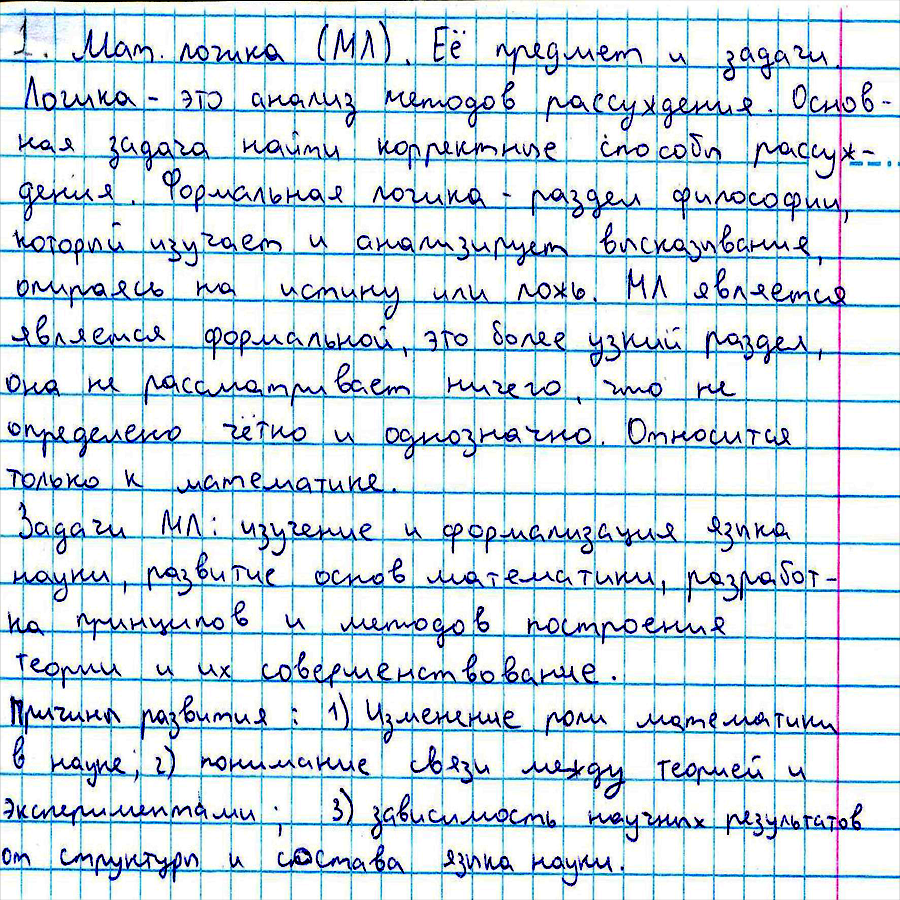 1. Мат. логика (МЛ). Её предмет и задачи.
Логика - это анализ методов рассуждения. Основ-
ная задача найти корректные способы рассуж-
дения. Формальная логика - раздел философии,
который изучает и анализирует высказывания,
опираясь на истину или ложь. МЛ является
является формальной, это более узкий раздел,
она не рассматривает ничего, что не
определено чётко и однозначно. Относится
только к математике.
Задачи МЛ: изучение и формализация языка
науки, развитие основ математики, разработ-
ка принципов и методов построения
теории и их совершенствование.
Причины развития: 1) Изменение роли математики
в науке; 2) понимание связи между теорией и
экспериментами; 3) зависимость научных результатов
от структуры и состава языка науки.